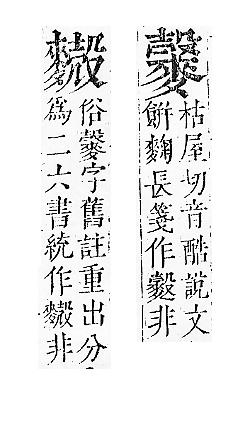 枯屋切音酷說文
餅麴長箋作非
俗字舊註重出分
為二六書統作非